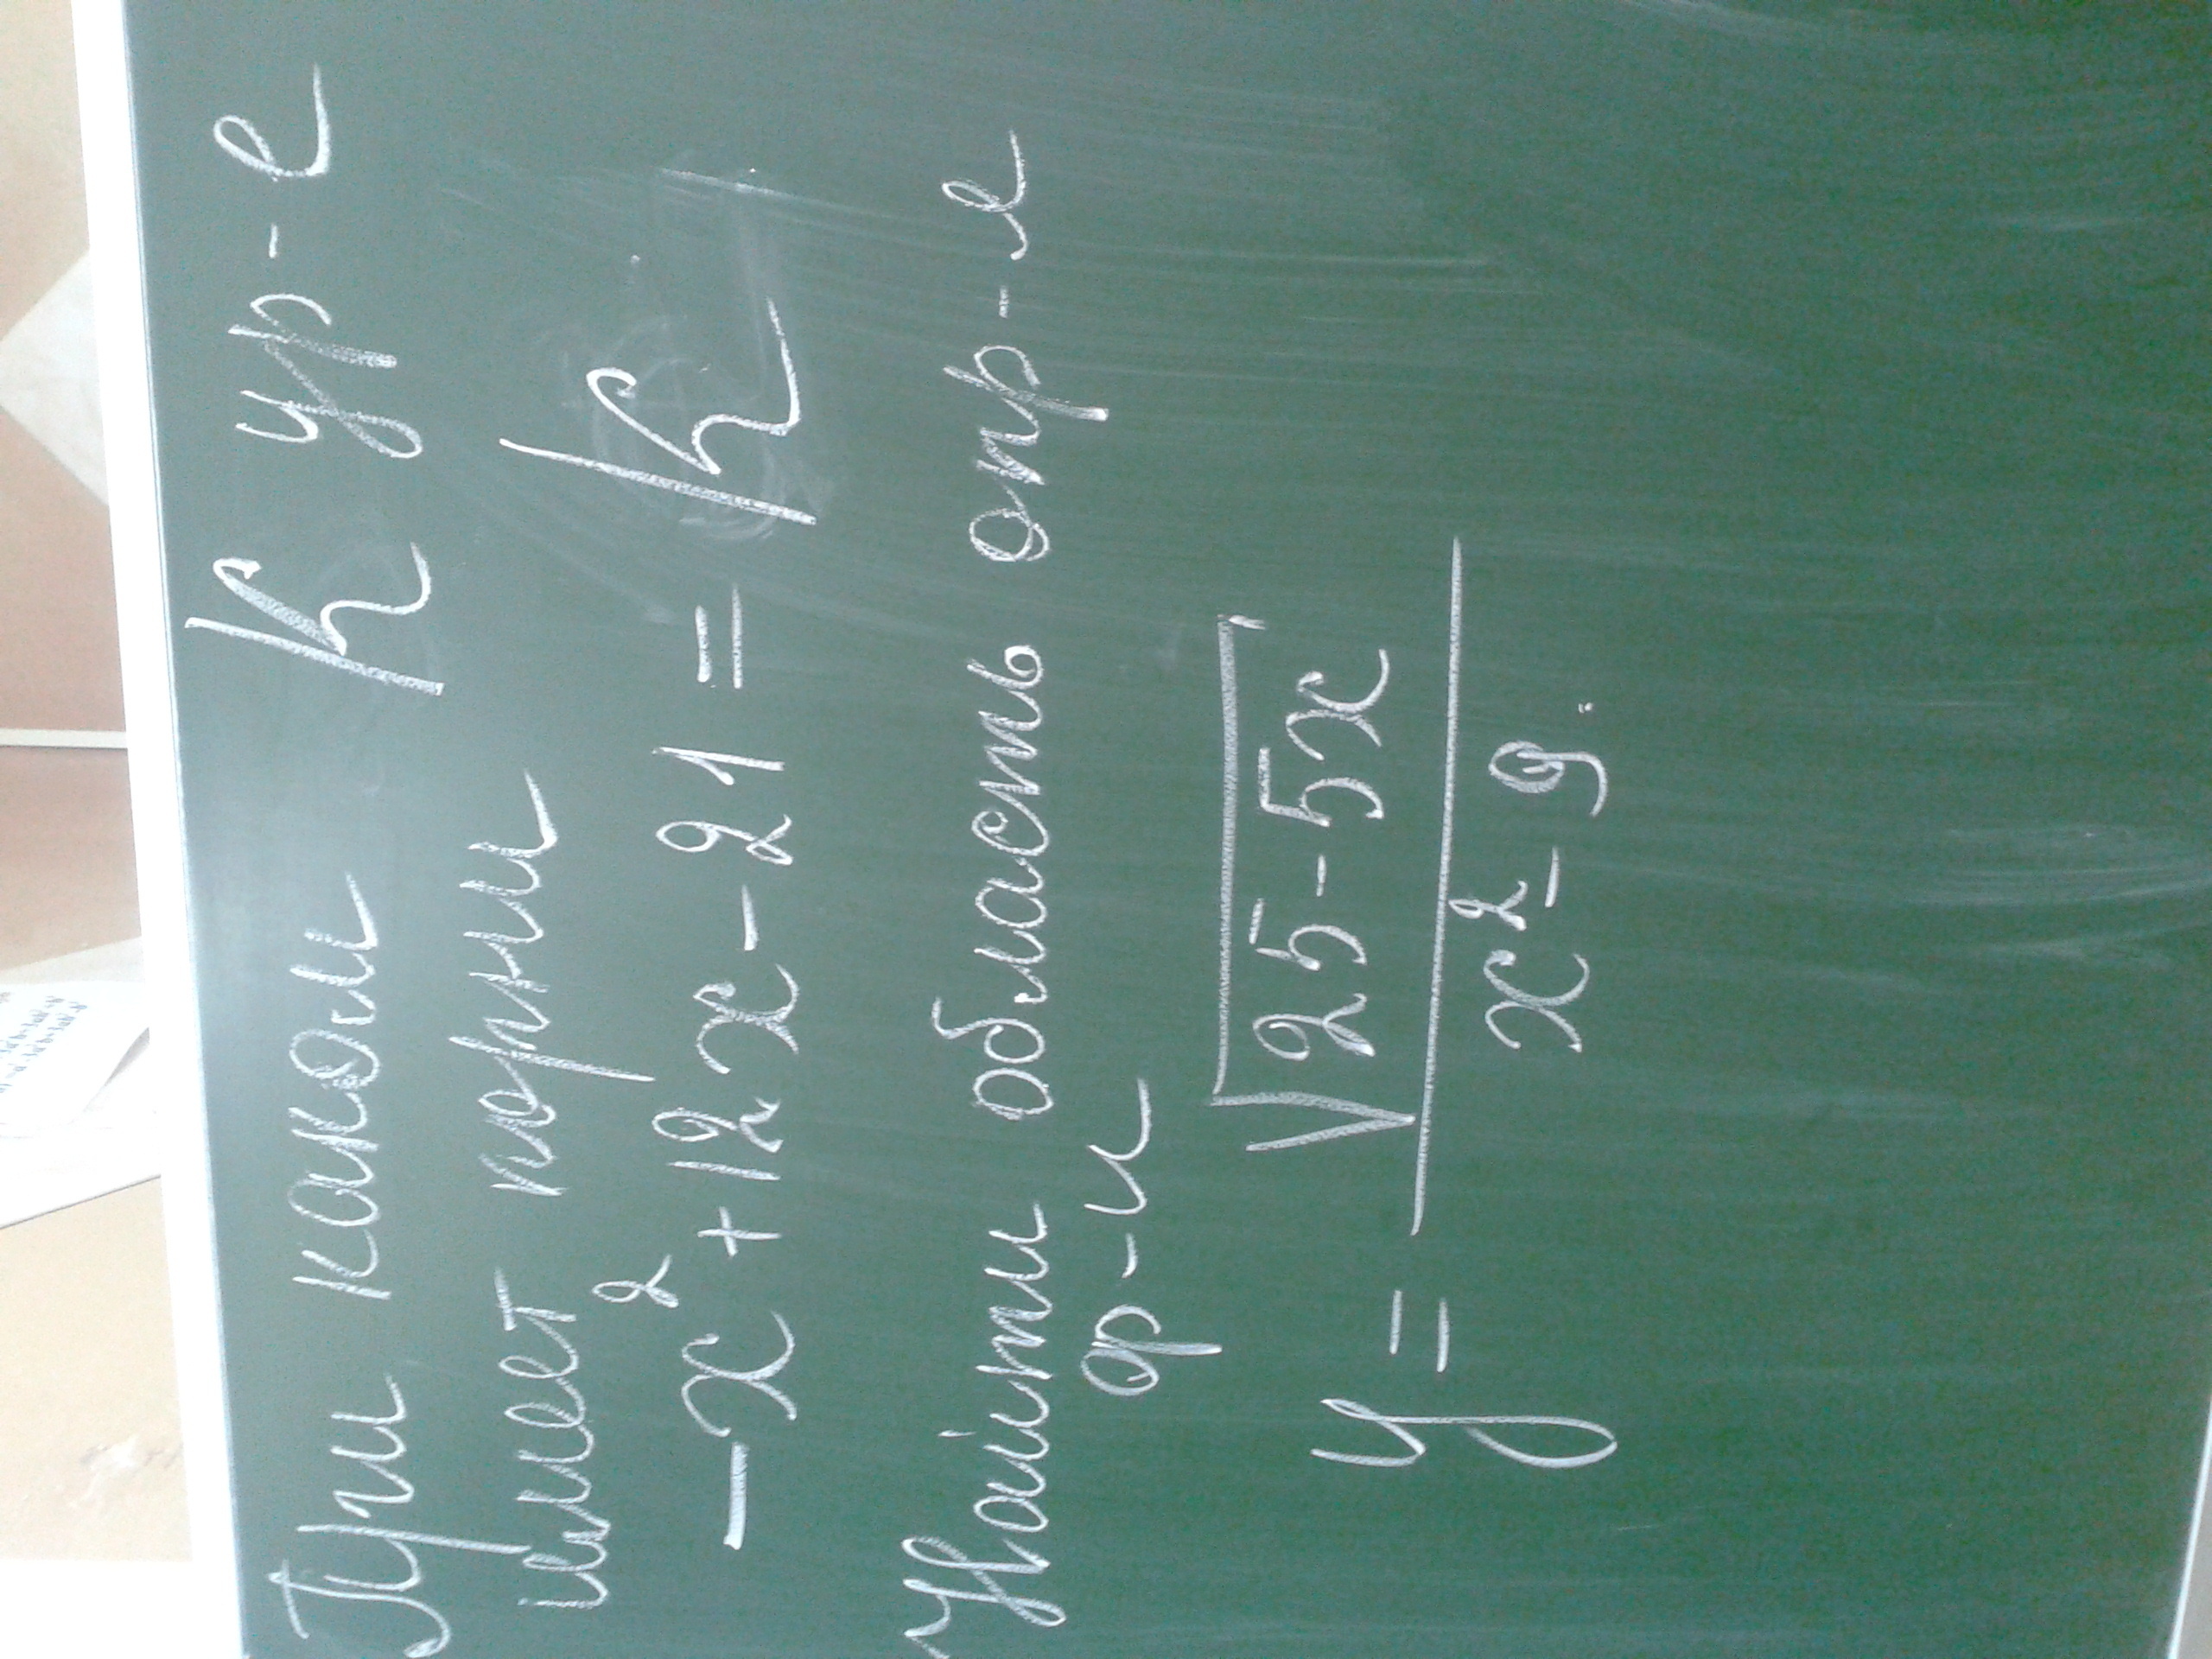 При каком k ур-е
имеет корни
-x²+12x-21=k
Найти область опр-я
ф-и
y = √25-5x / x²-9.